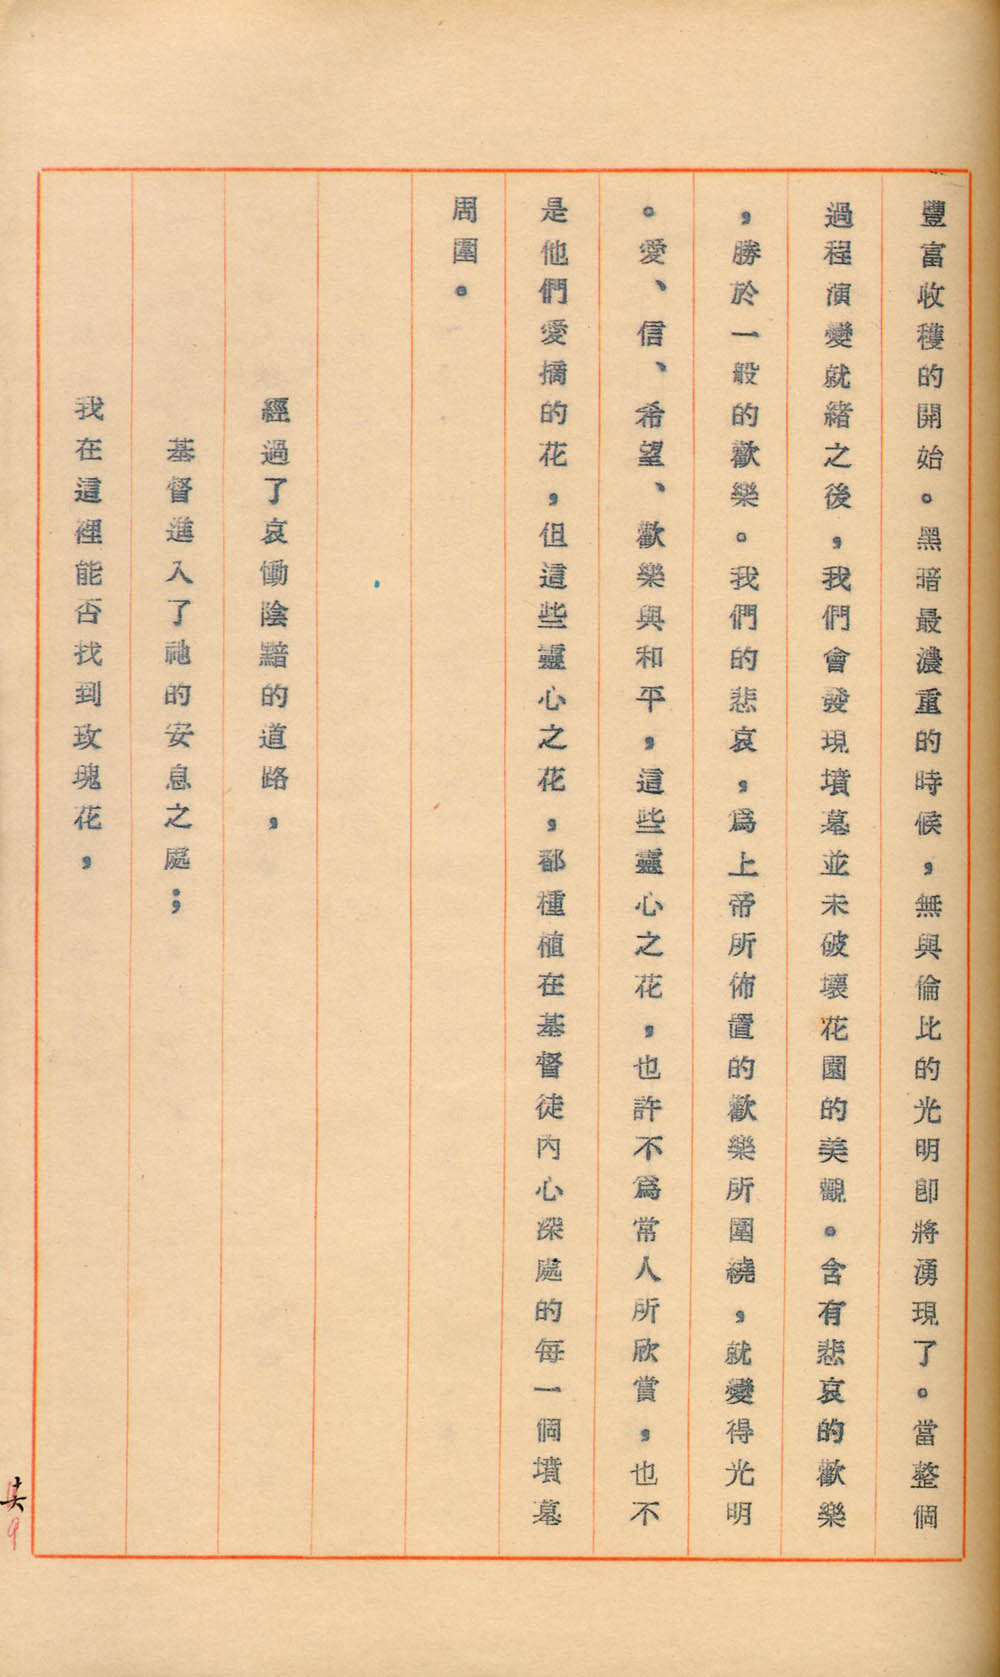 豐富收穫的開始。黑暗最濃重的時候，無與倫比的光明卽將湧現了。當整個
過程演變就緒之後，我們會發現墳墓並未破壞花園的美觀。含有悲哀的歡樂
，勝於一般的歡樂。我們的悲哀，爲上帝所佈置的歡樂所圍繞，就變得光明
。愛、信、希望、歡樂與和平，這些靈心之花，也許不爲常人所欣賞，也不
是他們愛摘的花，但這些靈心之花，都種植在基督徒內心深處的每一個墳墓
周圍。
經過了哀慟陰黯的道路，
基督進入了祂的安息之處；
我在這裡能否找到玫瑰花，